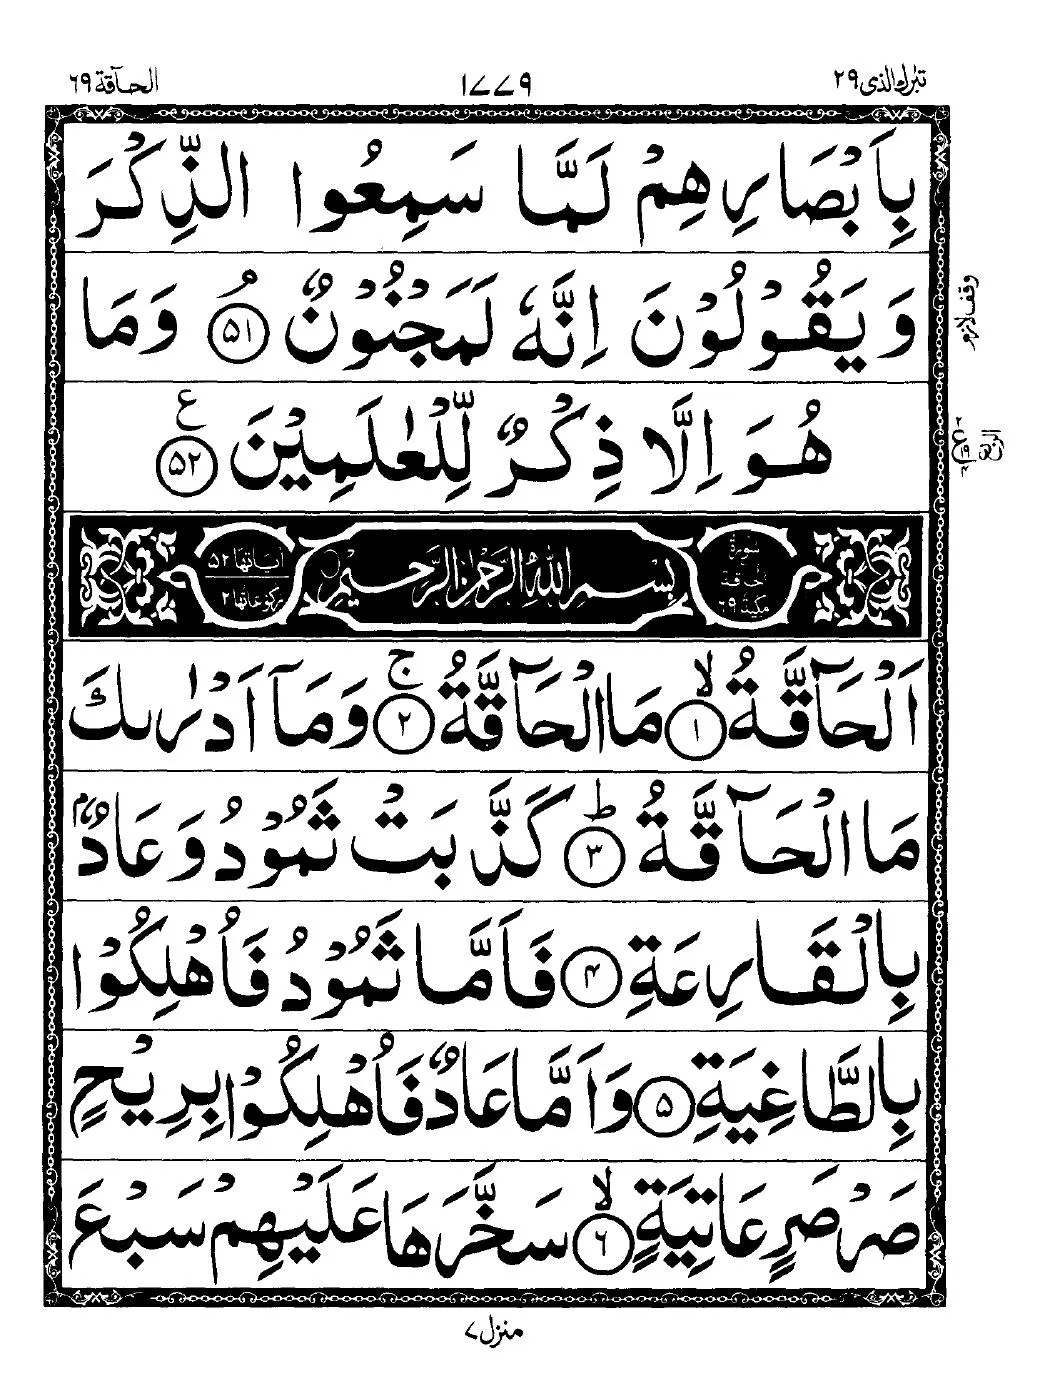 تبٰرك الذى ٢٩
١٧٧٩
الحآقة ٦٩
بِاَبْصَارِهِمْ لَمَّا سَمِعُوا الذِّكْرَ
وَيَقُوْلُوْنَ اِنَّهٗ لَمَجْنُوْنٌ ۘ ﴿۵۱﴾ وَمَا
وقف لازم
هُوَ اِلَّا ذِكْرٌ لِّلْعٰلَمِيْنَ ﴿۵۲﴾ ع
الربع
سورة الحاقة مكية ٦٩
بِسْمِ اللّٰهِ الرَّحْمٰنِ الرَّحِيْمِ
اٰياتها ٥٢
ركوعاتها ٢
اَلْحَآقَّةُ ﴿۱﴾ ۙ مَا الْحَآقَّةُ ﴿۲﴾ ۚ وَمَآ اَدْرٰىكَ
مَا الْحَآقَّةُ ﴿۳﴾ ؕ كَذَّبَتْ ثَمُوْدُ وَعَادٌۢ
بِالْقَارِعَةِ ﴿۴﴾ فَاَمَّا ثَمُوْدُ فَاُهْلِكُوْا
بِالطَّاغِيَةِ ﴿۵﴾ وَاَمَّا عَادٌ فَاُهْلِكُوْا بِرِيْحٍ
صَرْصَرٍ عَاتِيَةٍ ﴿۶﴾ ۙ سَخَّرَهَا عَلَيْهِمْ سَبْعَ
منزل ٧